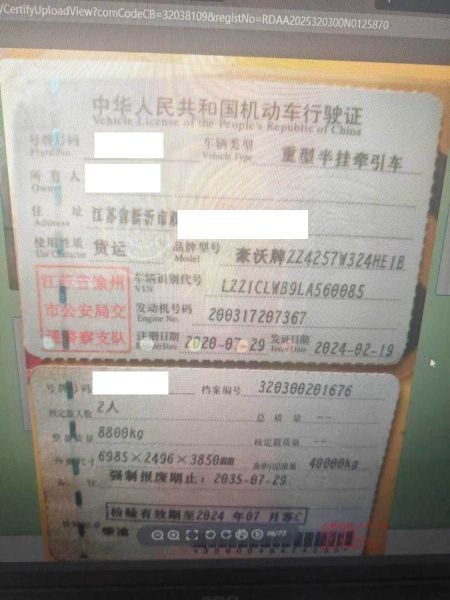 /CertifyUploadView?comCodeCB=32038109&registNo=RDAA2025320300N0125870
中华人民共和国机动车行驶证
Vehicle License of the People's Republic of China
号牌号码 车辆类型 重型半挂牵引车
Plate No. Vehicle Type
所有人
Owner
住址 江苏省新沂市双
Address
使用性质 货运 品牌型号 豪沃牌ZZ4257W324HE1B
Use Character Model
江苏省徐州 车辆识别代号 LZZ1CLWB9LA560085
VIN
市公安局交 发动机号码 200317207367
Engine No.
通警察支队 注册日期 2020-07-29 发证日期 2024-02-19
Register Date Issue Date
号牌号码 档案编号 320300201676
核定载人数 2人 总质量 --
整备质量 8800kg 核定载质量 --
外廓尺寸 6985×2496×3850mm 准牵引总质量 40000kg
备注 强制报废期止：2035-07-29
检验有效期至2024年07月苏C
柴油
66/73